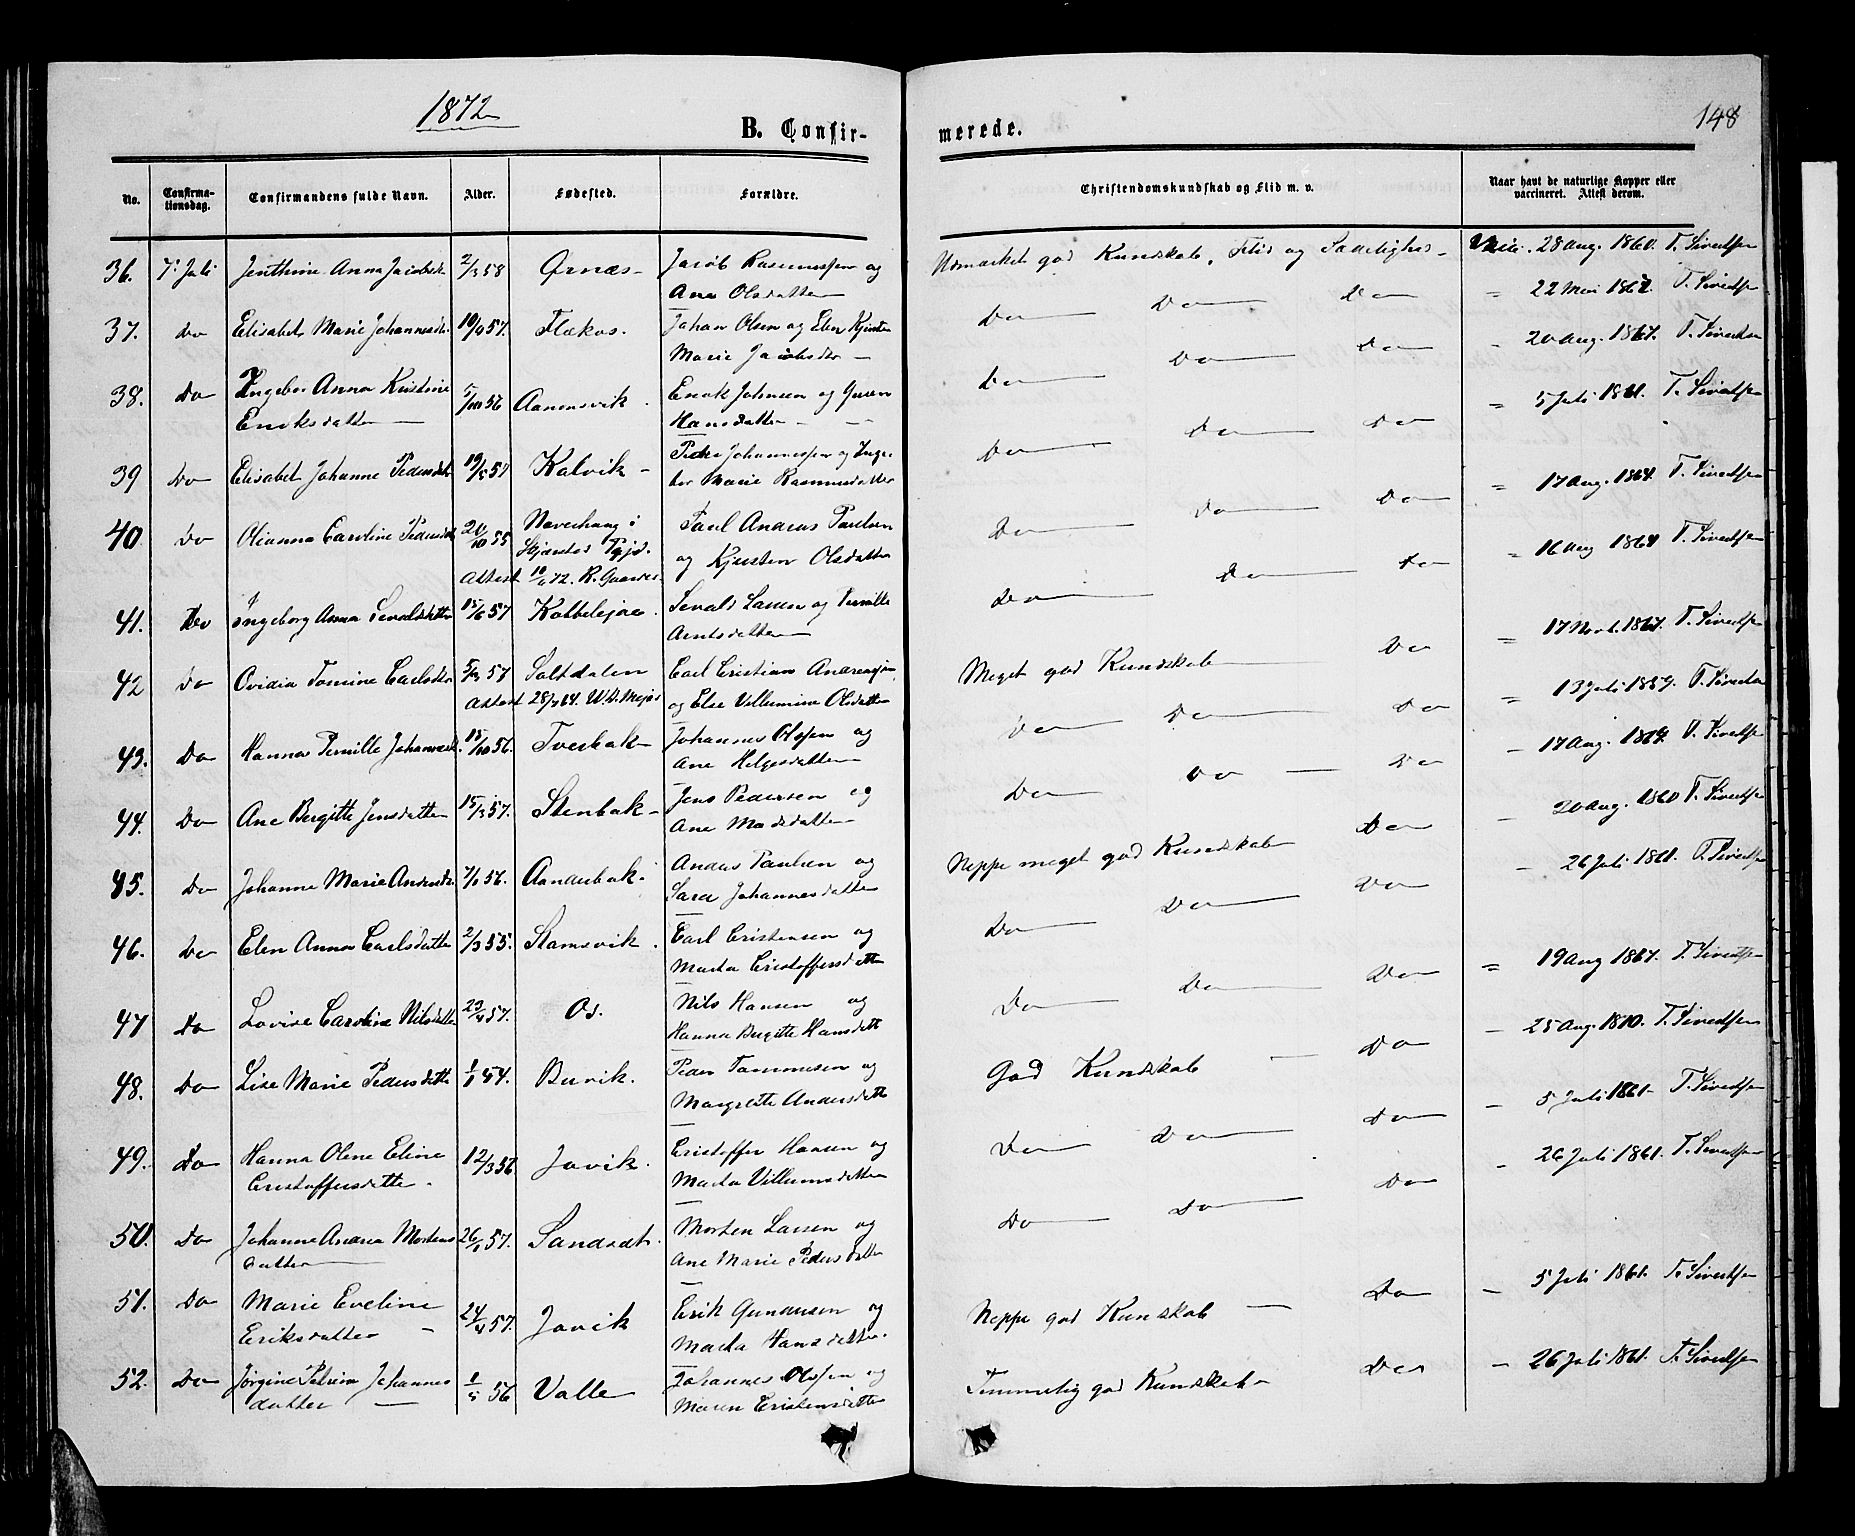 1872
148
B. Confir- merede.
No. Confirma-tionsdag. Confirmandens fulde Navn. Alder. Fødested. Forældre. Christendomskundskab og Flid m. v. Naar havt de naturlige Kopper eller vaccineret. Attest derom.
36. 7 Juli Jenthine Anna Jacobsd. 2/3 58 Ørnæs Jacob Rasmussen og Udmærket god Kundskab, Flid og Sædelighed Vacc. 28 Aug. 1860. T. Sivertsen
Ane Olsdatter
37. Do Elisabet Marie Johannesdr 19/9 57. Flekos. Johan Olsen og Elen Kjerste Do Do Do " 22 Mai 1862. T. Sivertsen
Marie Jacobsdr
38. Do Ingebor Anna Kristine 5/10 56 Aamnsvik. Enok Johnsen og Guren Do Do Do 20 Aug. 1867. T. Sivertsen
Enoksdatter Hansdatter
39 Do Elisabet Johanne Pedersdtr 19/5 57 Kalvik Peder Johannessen og Inge- Do Do Do " 5 Juli 1861. T. Sivertsen
bor Marie Rasmusdatter
40 Do Olianna Caroline Pedersdt 20/10 55 Naverhaug i Paul Andreas Paulsen Do Do Do " 17 Aug. 1864. T. Sivertsen
Skjerstad Pgjd. og Kjersten Olsdatter
Attest 10/6 72. R.
41. Do Ingeborg Anna Sevaldsdatter 15/6 57 Kobbelejre. Sevald Larsen og Pernille Do Do Do " 16 Aug 1864 T. Sivertsen
Arntsdatter
42 Do Ovidia Tomine Carlsdtr 57 Saltdalen Carl Cristian Andreassen Meget god Kundskab Do " 17 Novb. 1867. T. Sivertsen
Attest 28/7 64. og Else Villumine Olsdatter
43. Do Hanna Pernille Johannesd. 15/10 56. Tverbak Johannes Olssen og Do Do Do " 13 Juli 1859. T. Sivertsen
Ane Helgesdatter
44. Do Ane Bergitte Jensdatter 15/3 57. Stenbak Jens Pedersen og Do Do Do 17 Aug. 1864. T. Sivertsen
Ane Madsdatter
45. Do Johanne Marie Andersdr 7/1 56. Aanderbak. Anders Paulsen og Neppe meget god Kundskab Do 20 Aug. 1860 T. Sivertsen
Sara Johannesdatter
46. Do Elen Anna Carlsdatter 2/3 55. Stamsvik. Carl Cristensen og Do Do Do 26 Juli 1861. T. Sivertsen
Marta Cristoffersdatter
47 Do Lovise Caroline Nilsdatter 23/4 57. Os. Nils Hansen og Do Do Do = 19 Aug 1867. T. Sivertsen
Hanna Birgitte Hansdatt
48. Do Lise Marie Pedersdatter 1/1 54. Buvik. Peder Tommesen og God Kundskab Do 25 Aug. 1870. T. Sivertsen
Margrette Andersdatt
49. Do Hanna Olene Eline 12/3 56 Jovik. Cristoffer Hansen og Do Do Do 5 Juli 1861. T. Sivertsen
Cristoffersdatter. Marta Villumsdatter
50. Do Johanne Andrea Mortens 26/1 57. Sandedt. Morten Larsen og Do Do Do 26 Juli 1861. T. Sivertsen
datter Ane Marie Pedersdatter
51. Do Marie Eveline 24/4 57. Jovik Erik Gundersen og Neppe god Kunskab Do 5 Juli 1861. T. Sivertsen
Eriksdatter Marta Hansdatter.
52. Do Jørgine Petrine Johannes 1/5 56 Valle Johannes Olssen og Temmelig god Kundskab Do 26 Juli 1861. T. Sivertsen
datter Maren Cristensdatter